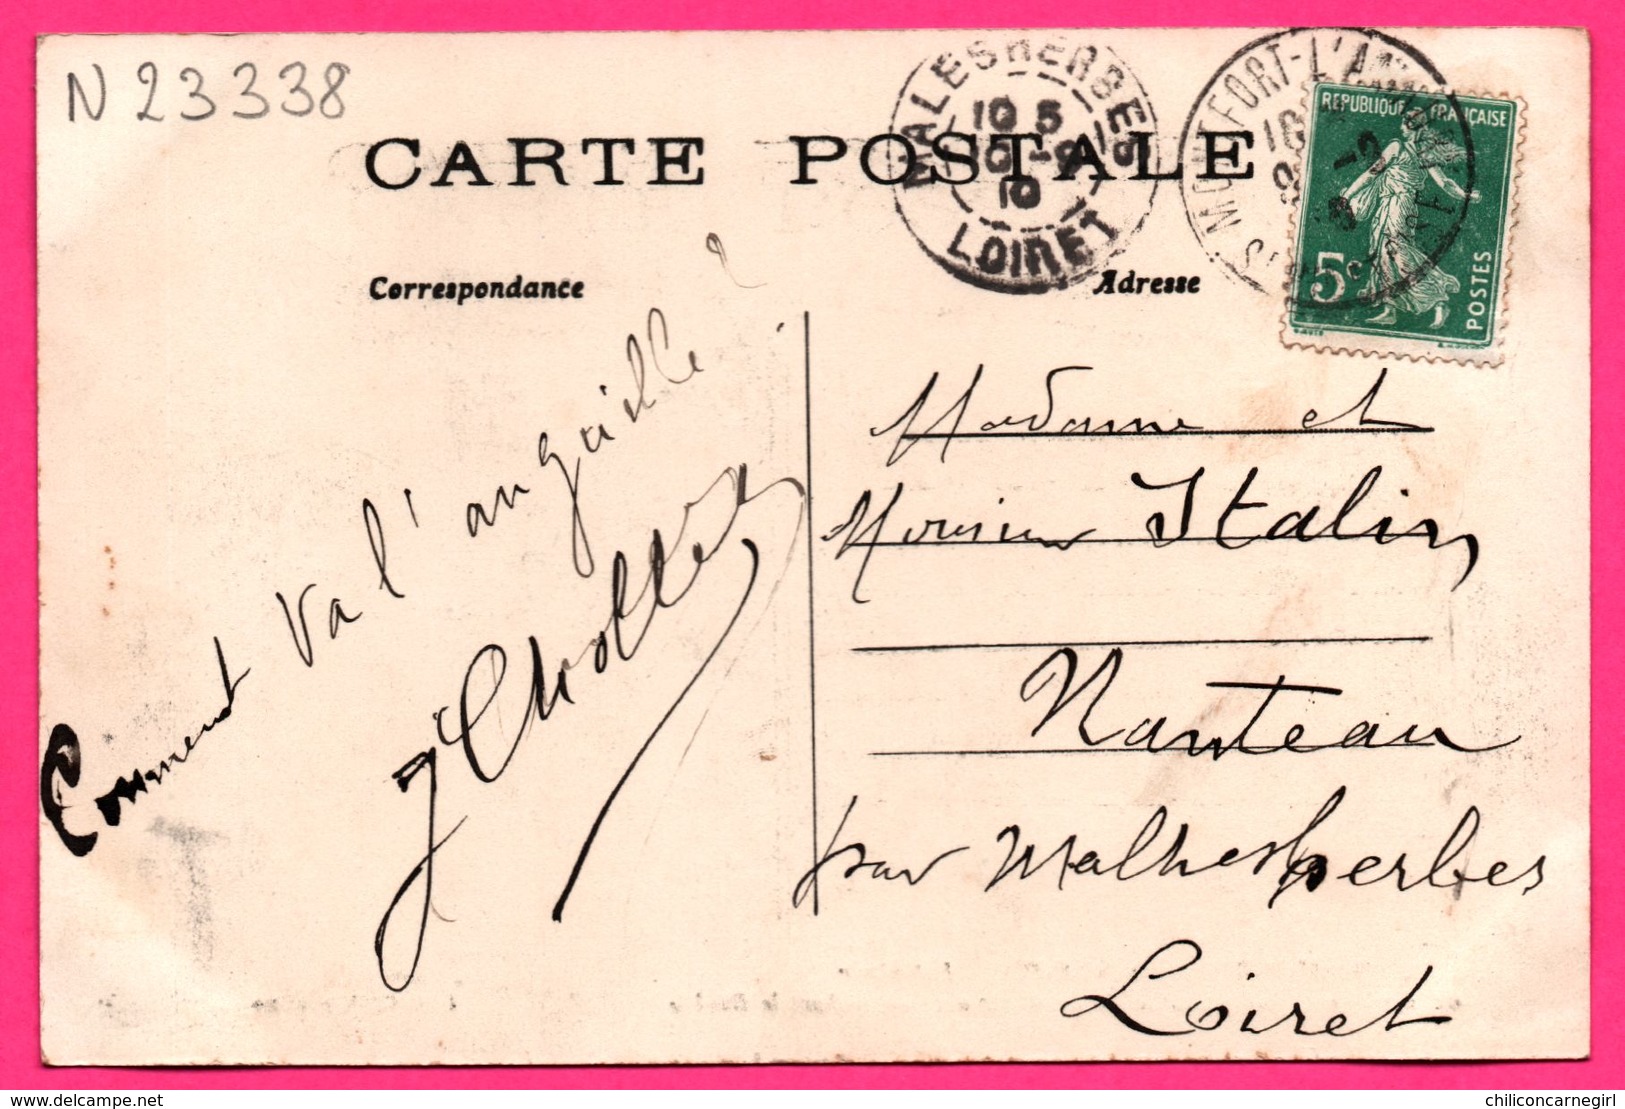 N 23338
MALESHERBES
10 5
10 -2
10
LOIRET
MONTFORT-L'AM
REPUBLIQUE FRANÇAISE
5c
POSTES
CARTE POSTALE
Correspondance
Adresse
Comment va l'anguille ?
Madame et
Monsieur Stalin
Nanteau
par Malhesherbes
Loiret
delcampe.net
chiliconcarnegirl